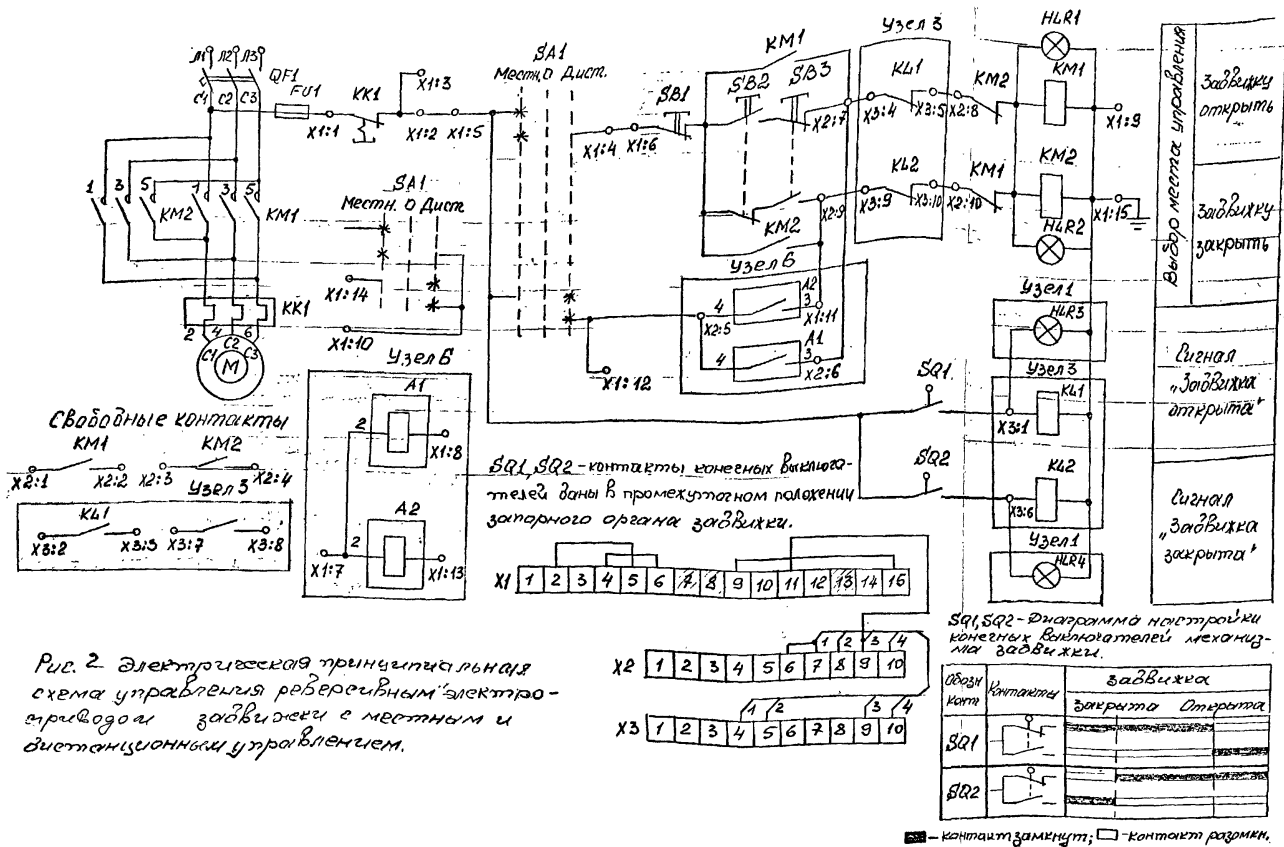 Л1 Л2 Л3
QF1
C1 C2 C3
FU1
X1:1
KK1
X1:3
X1:2 X1:5
SA1
Местн. О Дист.
X1:4 X1:6
SB1
KM1
SB2 SB3
X2:7
Узел 3
X3:4
KL1
X3:5 X2:8
KM2
HLR1
KM1
X1:9
KM2
X2:9
X3:9
KL2
X3:10 X2:10
KM1
KM2
X1:15
HLR2
Выбор места управления
Задвижку
открыть
Задвижку
закрыть
1 3 5 1 3 5
KM2 KM1
SA1
Местн. О Дист.
X1:14
X1:10
KK1
2 4 6
C1 C2 C3
M
Узел 6
4 A2 3
X2:5 X1:11
4 A1 3
X2:6
X1:12
Узел 6
A1
2
X1:8
A2
2
X1:7 X1:13
Узел 1
HLR3
Узел 3
KL1
X3:1
KL2
X3:6
Узел 1
HLR4
SQ1
SQ2
Сигнал
„Задвижка
открыта"
Сигнал
„Задвижка
закрыта"
Свободные контакты
KM1 KM2
X2:1 X2:2 X2:3 X2:4
Узел 3
KL1
X3:2 X3:3 X3:7 X3:8
SQ1, SQ2 - контакты конечных выключа-
телей даны в промежуточном положении
запорного органа задвижки.
X1 1 2 3 4 5 6 7 8 9 10 11 12 13 14 15
1 2 3 4
X2 1 2 3 4 5 6 7 8 9 10
1 2 3 4
X3 1 2 3 4 5 6 7 8 9 10
Рис. 2 Электрическая принципиальная
схема управления реверсивным электро-
приводом задвижки с местным и
дистанционным управлением.
SQ1, SQ2 - Диаграмма настройки
конечных выключателей механиз-
ма задвижки.
Обозн конт Контакты Задвижка
Закрыта Открыта
SQ1
SQ2
- контакт замкнут; - контакт разомкн.